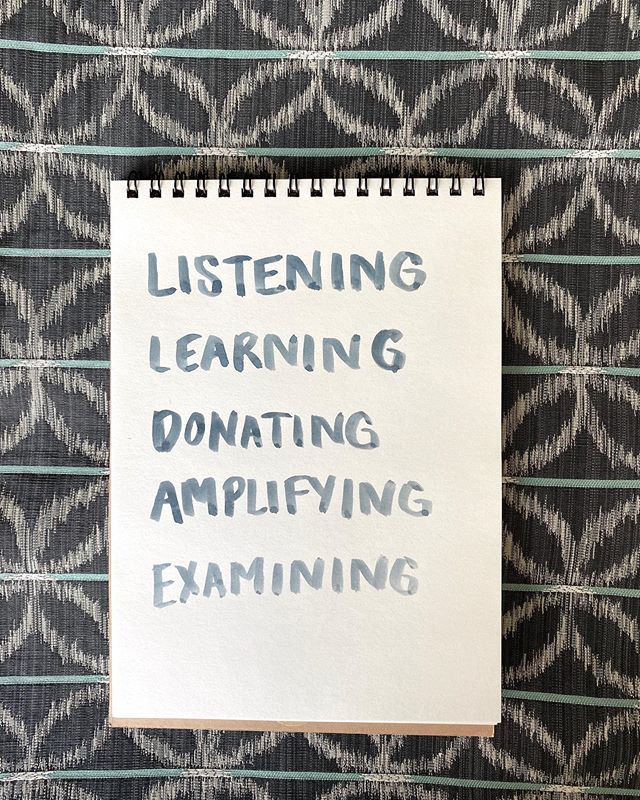 LISTENING
LEARNING
DONATING
AMPLIFYING
EXAMINING